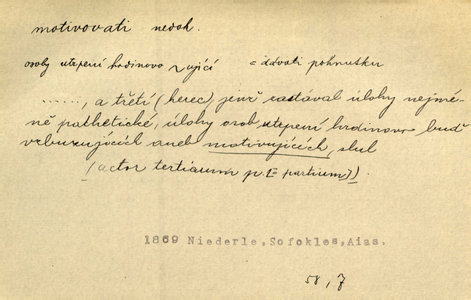 motivovati nedok.
osoby utrpení hrdinovo ující = dávati pohnutku
......, a třetí (herec) jenž zastával úlohy nejmé-
ně pathetické, úlohy osob utrpení hrdinovo buď
vzbuzujících aneb motivujících, slul
(actor tertiarum partium).
1869 Niederle, Sofokles, Aias.
58, 7